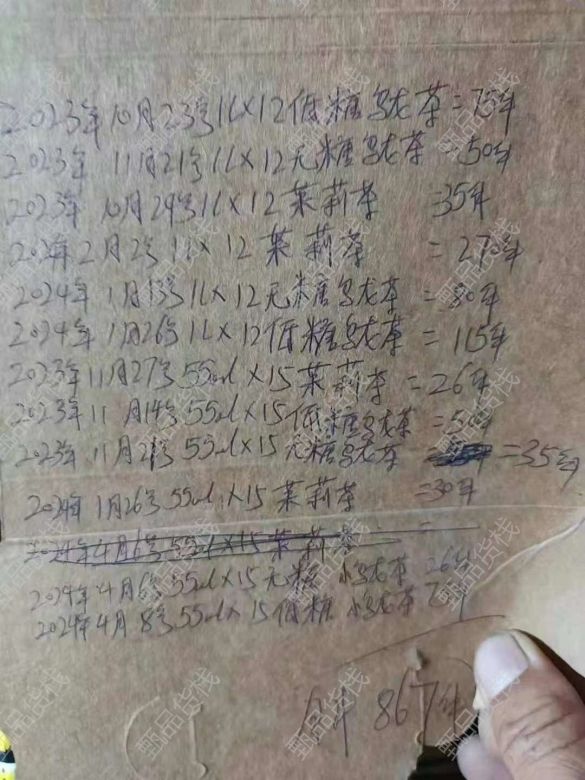 2023年10月23号1L×12低糖乌龙茶=75件
2023年11月21号1L×12无糖乌龙茶=50件
2023年10月29号1L×12茉莉茶=35件
2月2号1L×12茉莉茶=27件
2024年1月13号1L×12无糖乌龙茶=80件
2024年1月26号1L×12低糖乌龙茶=115件
2023年11月27号550ml×15茉莉茶=26件
2023年11月14号550ml×15低糖乌龙茶=50件
2023年11月2号550ml×15无糖乌龙茶=35件
2024年1月26号550ml×15茉莉茶=30件
2024年4月6号550ml×15茉莉茶=
2024年4月6号550ml×15无糖小乌龙茶
2024年4月8号550ml×15低糖小乌龙茶
867件
甄品货栈